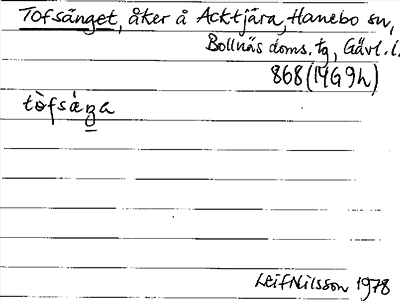 Tofsänget, åker å Acktjära, Hanebo sn,
Bollnäs doms. tg, Gävl. l.
868 (14G 9h)
tòfsáŋa
Leif Nilsson 1978